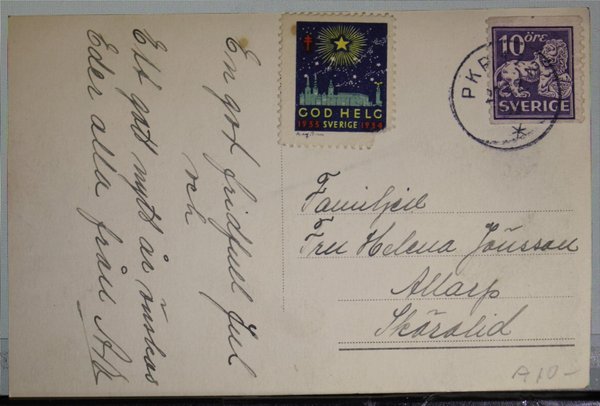 En god fridfull Jul
och
Ett gott nytt år önskas
Eder alla från
GOD HELG
1933 SVERIGE 1934
10 ÖRE
SVERIGE
PKP
Familjen
Fru Helena Jönsson
Allarp
Skörolid
A 10 -